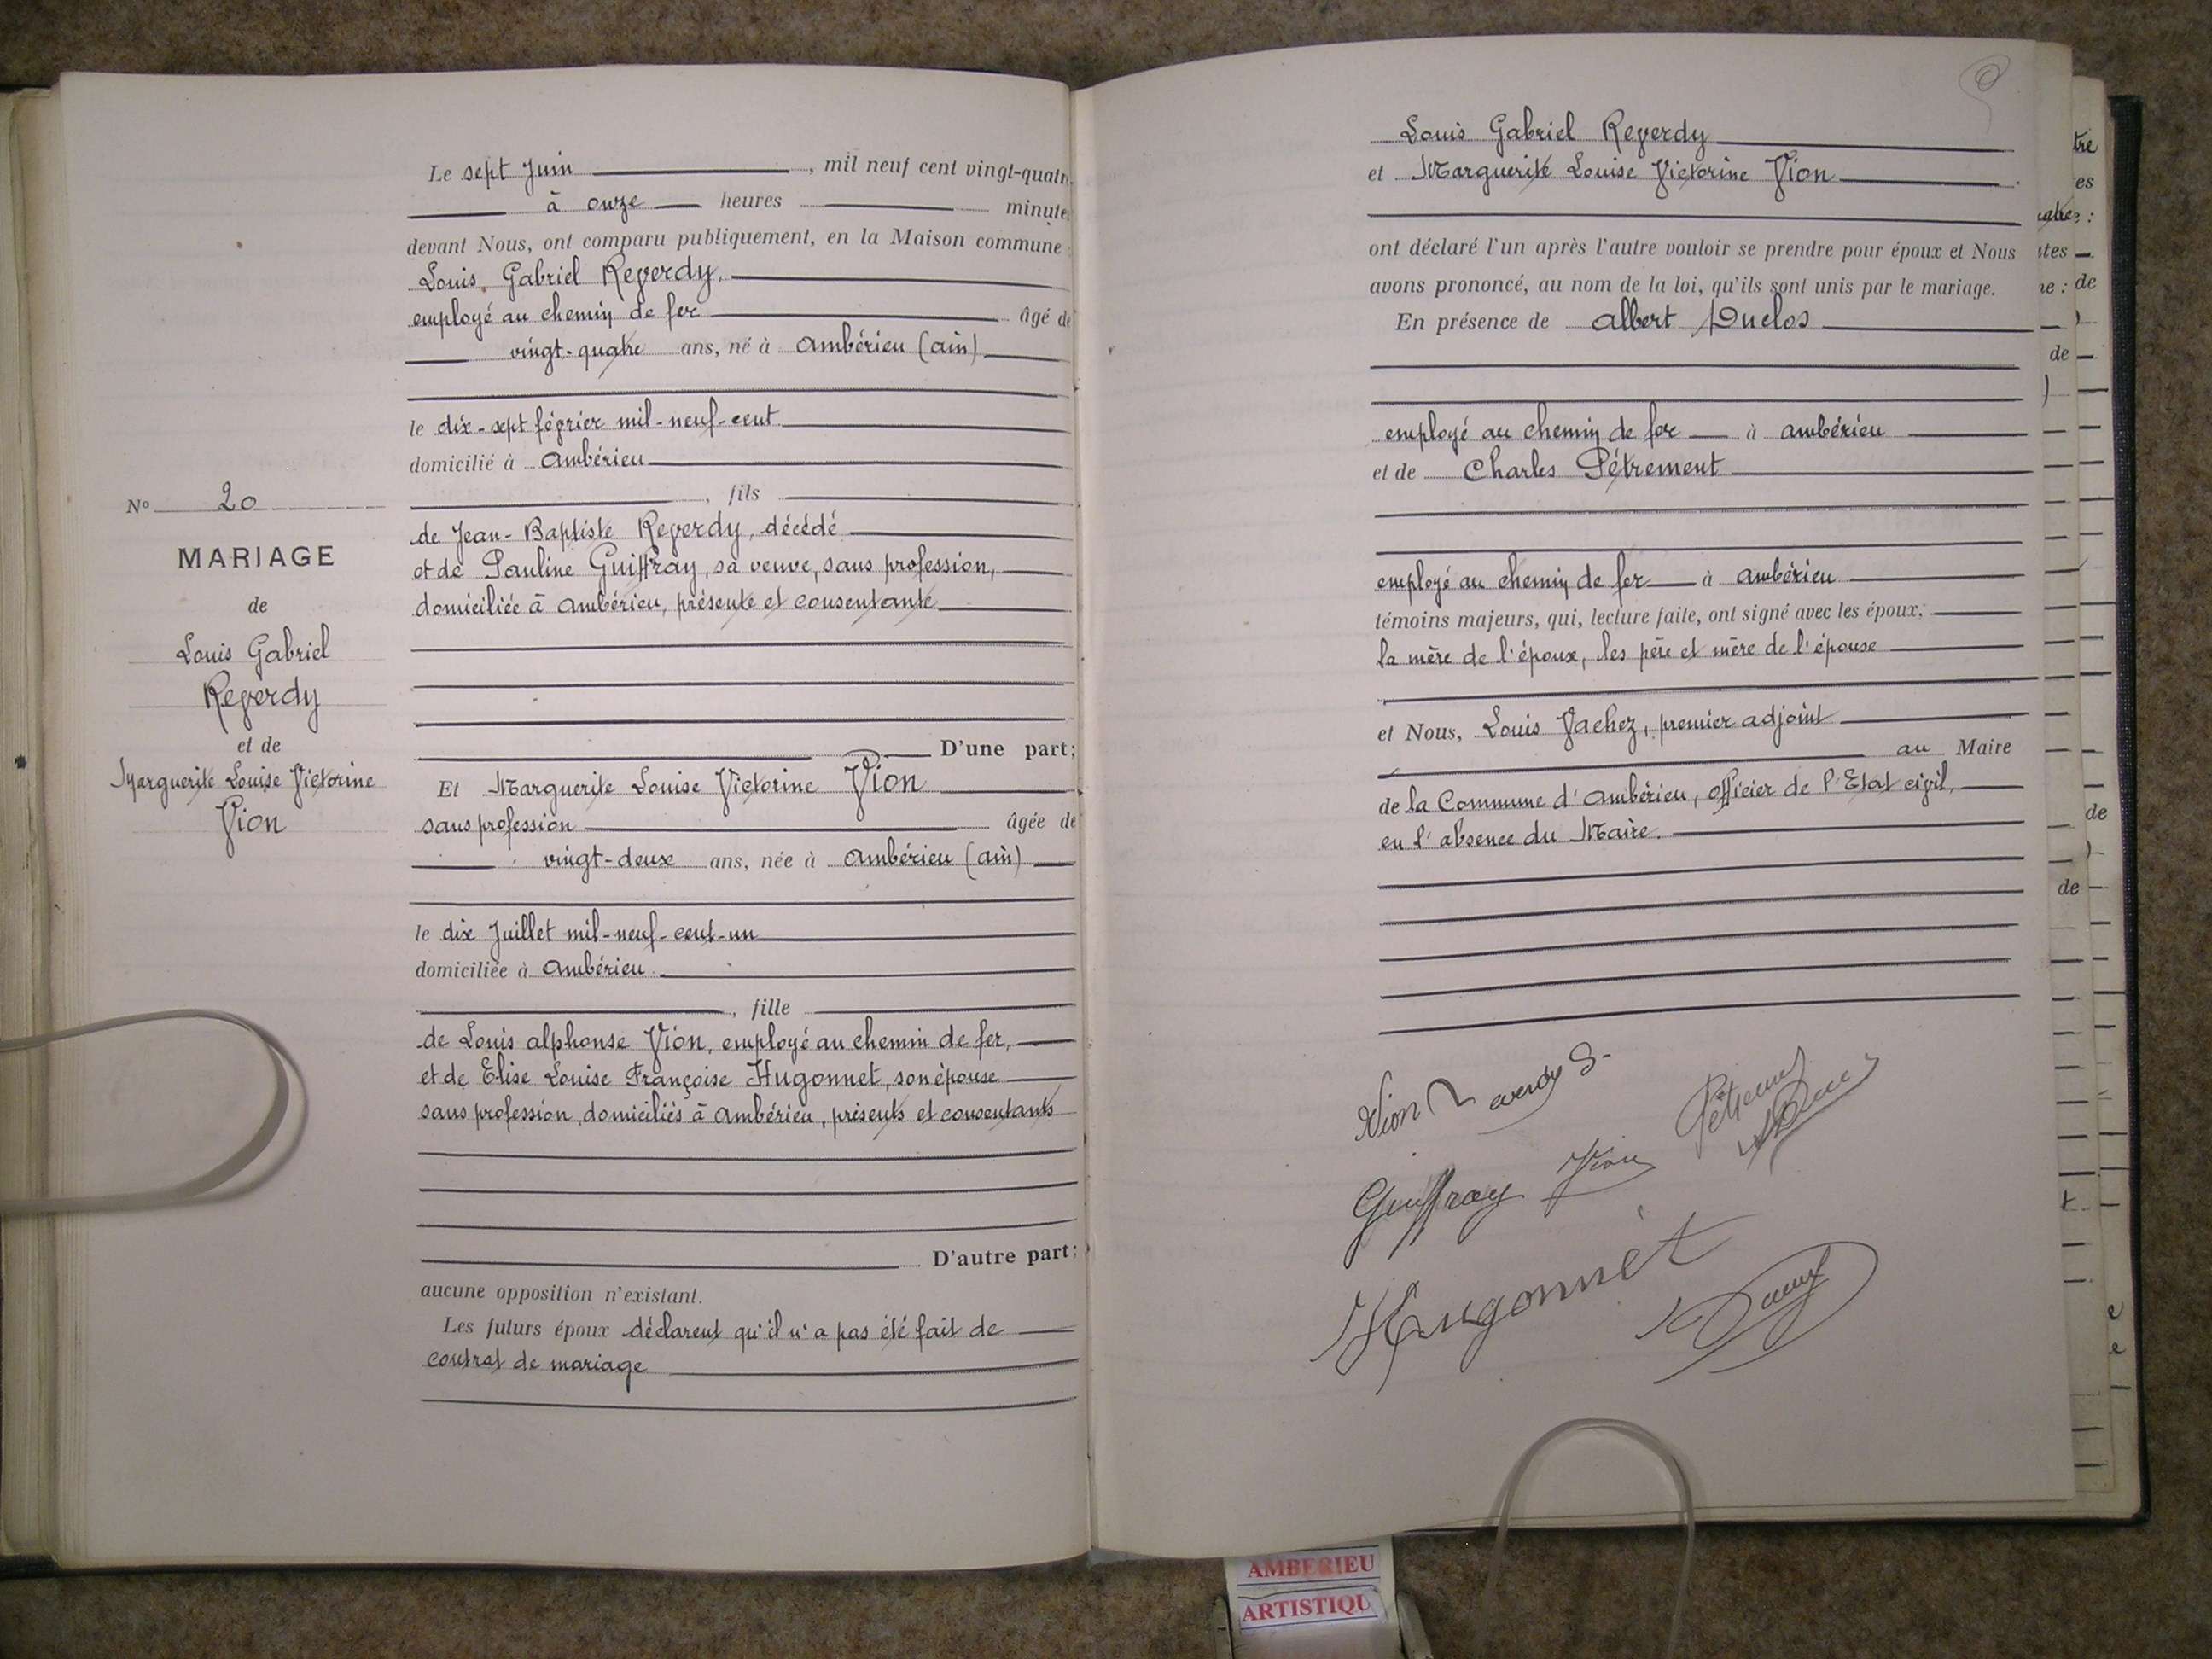 Le sept Juin, mil neuf cent vingt-quatre
à onze heures minutes
devant Nous, ont comparu publiquement, en la Maison commune
Louis, Gabriel Reverdy,
employé au chemin de fer âgé de
vingt-quatre ans, né à Ambérieu (Ain)
le dix-sept février mil-neuf-cent
domicilié à Ambérieu
, fils
de Jean-Baptiste Reverdy, décédé
et de Pauline Guiffray, sa veuve, sans profession,
domiciliée à Ambérieu, présente et consentante
D'une part;
Et Marguerite Louise Victorine Vion
sans profession âgée de
vingt-deux ans, née à Ambérieu (Ain)
le dix Juillet mil-neuf-cent-un
domiciliée à Ambérieu
, fille
de Louis Alphonse Vion, employé au chemin de fer,
et de Elise Louise Françoise Hugonnet, son épouse
sans profession, domiciliés à Ambérieu, présents et consentants
D'autre part;
aucune opposition n'existant.
Les futurs époux déclarent qu'il n'a pas été fait de
contrat de mariage
No 20
MARIAGE
de
Louis Gabriel
Reverdy
et de
Marguerite Louise Victorine
Vion
Louis Gabriel Reverdy
et Marguerite Louise Victorine Vion
ont déclaré l'un après l'autre vouloir se prendre pour époux et Nous
avons prononcé, au nom de la loi, qu'ils sont unis par le mariage.
En présence de Albert Duclos
employé au chemin de fer à Ambérieu
et de Charles Pétrement
employé au chemin de fer à Ambérieu
témoins majeurs, qui, lecture faite, ont signé avec les époux,
la mère de l'époux, les père et mère de l'épouse
et Nous, Louis Vachez, premier adjoint
au Maire
de la Commune d'Ambérieu, officier de l'Etat civil,
en l'absence du Maire.
Vion Reverdy G
Guiffray Vion
Hugonnet
AMBERIEU
ARTISTIQU